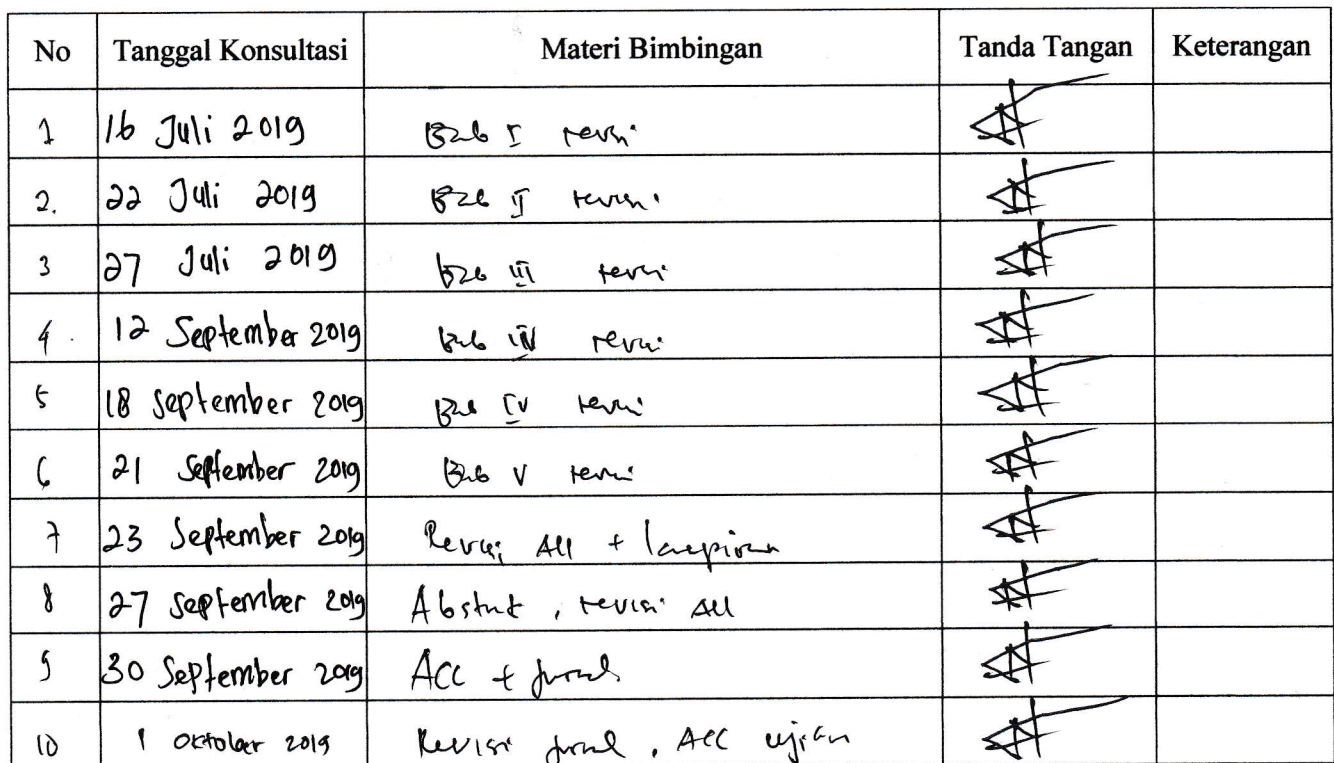 No Tanggal Konsultasi Materi Bimbingan Tanda Tangan Keterangan
1 16 Juli 2019 Bab I revisi
2. 22 Juli 2019 Bab II revisi
3 27 Juli 2019 Bab III revisi
4. 12 September 2019 Bab IV revisi
5 18 September 2019 Bab IV revisi
6 21 September 2019 Bab V revisi
7 23 September 2019 Revisi All + lampiran
8 27 September 2019 Abstrak, revisi All
9 30 September 2019 ACC + jurnal
10 1 Oktober 2019 Revisi jurnal, ACC ujian